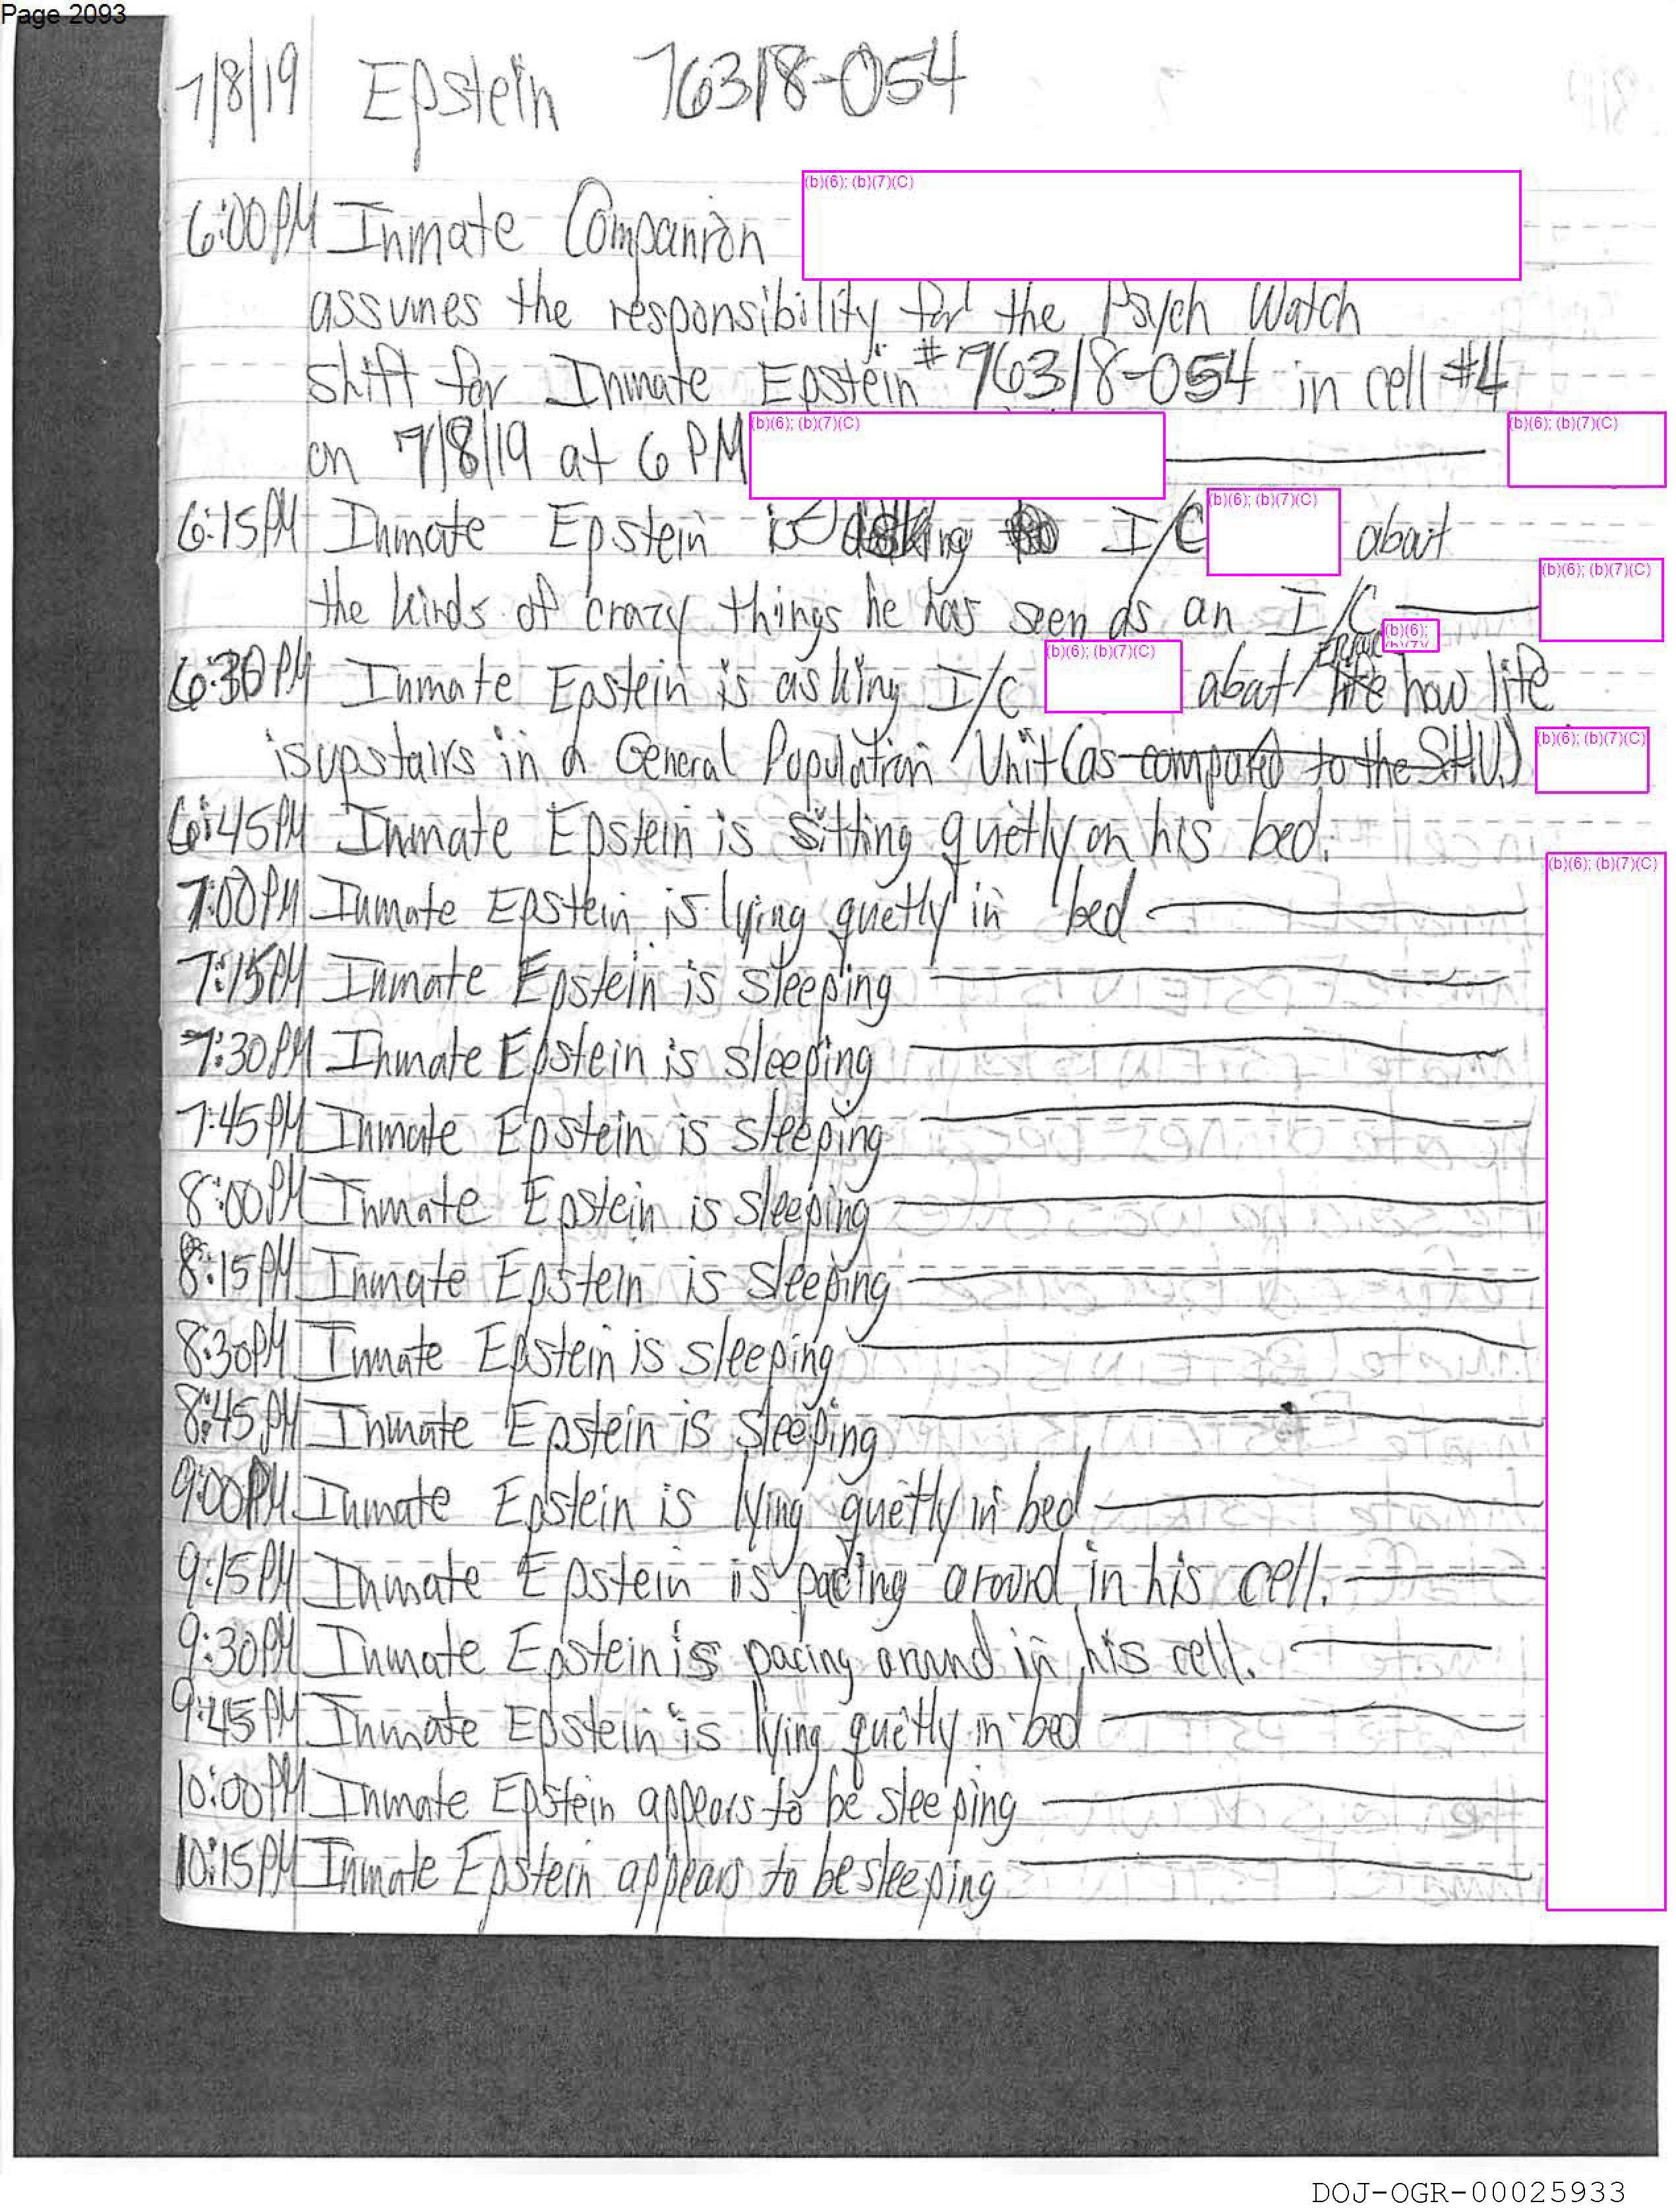 Page 2093
7/8/19 Epstein 76318-054
(b)(6); (b)(7)(C)
6:00PM Inmate Companion
assumes the responsibility for the Psych Watch
shift for Inmate Epstein #76318-054 in cell #4
on 7/8/19 at 6 PM (b)(6); (b)(7)(C) (b)(6); (b)(7)(C)
6:15PM Inmate Epstein is asking I/C (b)(6); (b)(7)(C) about
the kinds of crazy things he has seen as an I/C (b)(6); (b)(7)(C)
(b)(6);
6:30PM Inmate Epstein is asking I/C (b)(6); (b)(7)(C) about life how life
is upstairs in a General Population Unit (as compared to the SHU.) (b)(6); (b)(7)(C)
6:45PM Inmate Epstein is sitting quietly on his bed.
(b)(6); (b)(7)(C)
7:00PM Inmate Epstein is lying quetly in bed
7:15PM Inmate Epstein is sleeping
7:30PM Inmate Epstein is sleeping
7:45PM Inmate Epstein is sleeping
8:00PM Inmate Epstein is sleeping
8:15PM Inmate Epstein is sleeping
8:30PM Inmate Epstein is sleeping
8:45PM Inmate Epstein is sleeping
9:00PM Inmate Epstein is lying quetly in bed
9:15PM Inmate Epstein is pacing around in his cell.
9:30PM Inmate Epstein is pacing around in his cell.
9:45PM Inmate Epstein is lying quetly in bed
10:00PM Inmate Epstein appears to be sleeping
10:15PM Inmate Epstein appears to be sleeping
DOJ-OGR-00025933